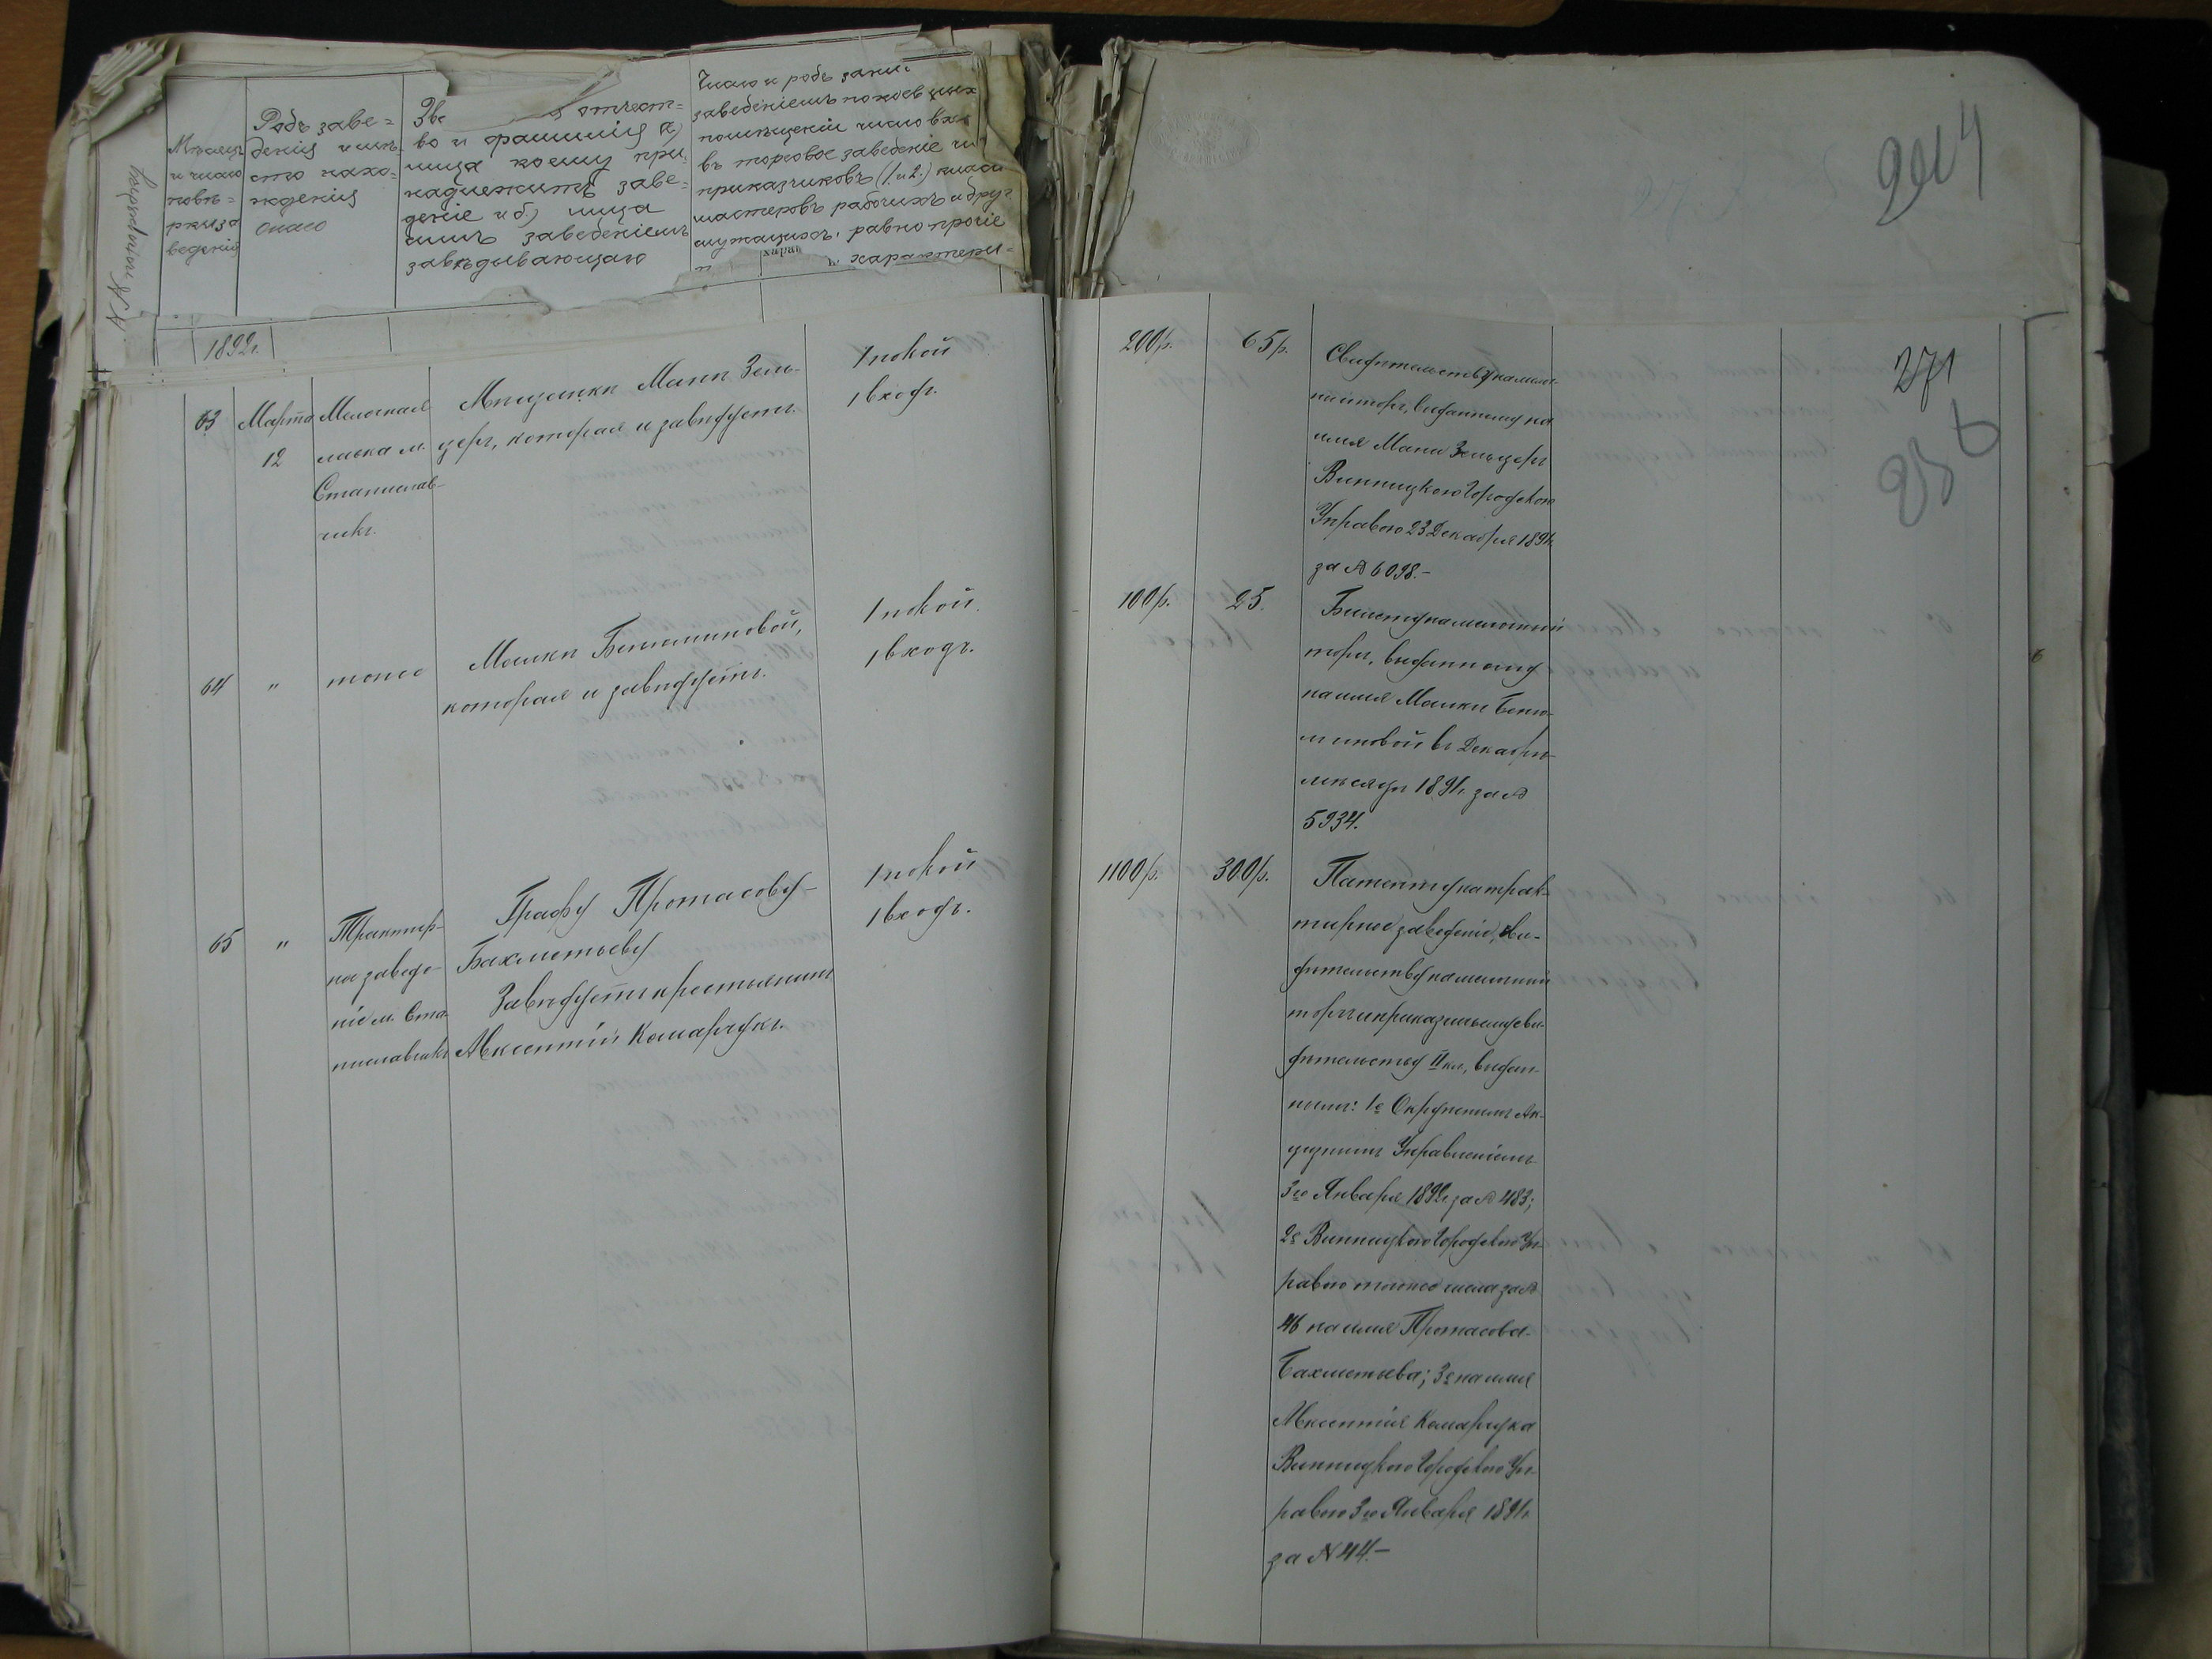 № по порядку
Мѣсяцъ
и число
повѣ=
рки за
веденія
Родъ заве=
денія и мѣ-
сто нахо-
жденія
онаго
Зва
отчест=
во и фамилія а)
лица коему при-
надлежитъ заве-
деніе и б) лица
симъ заведеніемъ
завѣдывающаго
Число и родъ зани
заведеніемъ покоевъ
помѣщеній число вхо
въ торговое заведеніе чи
приказчиковъ (1 и 2) класс
мастеровъ рабочихъ и друг
служащихъ, равно прочіе
характери=
1892г.
63
Марта
12
Мелочная
лавка м.
Станислав-
чикъ.
Мѣщанки Мани Зель-
церъ, которая и завѣдуетъ.
1 покой
1 входъ.
200р.
65р.
Свидѣтельству на мелоч-
ной торгъ, выданному на
имя Мани Зельцеръ
Винницкою Городскою
Управою 23 Декабря 1891г.
за № 6098.-
64
"
тоже
Машки Беньяминовой,
которая и завѣдуетъ.
1 покой
1 входъ.
100р.
25.
Билету на мелочный
торгъ, выданному
на имя Машки Бенья-
миновой въ Декабрѣ
мѣсяцѣ 1891г. за №
5934.
65
"
Трактир-
на заведе-
ніе м. Ста-
ниславчикъ
Графу Протасову-
Бахметьеву
Завѣдуетъ крестьянинъ
Авксентій Комарчукъ.
1 покой
1 входъ.
1100р.
300р.
Патенту на трак-
тирное заведеніе, сви-
дѣтельству на мелочный
торгъ и приказчичьему сви-
дѣтельству II кл., выдан-
нымъ: 1е Окружнымъ Ак-
цизнымъ Управленіемъ
3го Января 1892г. за № 483;
2е Винницкою Городскою Уп-
равою того же числа за №
46 на имя Протасова-
Бахметьева; 3е на имя
Авксентія Комарчука
Винницкою Городскою Уп-
равою 3го Января 1891г.
за № 44.-
271